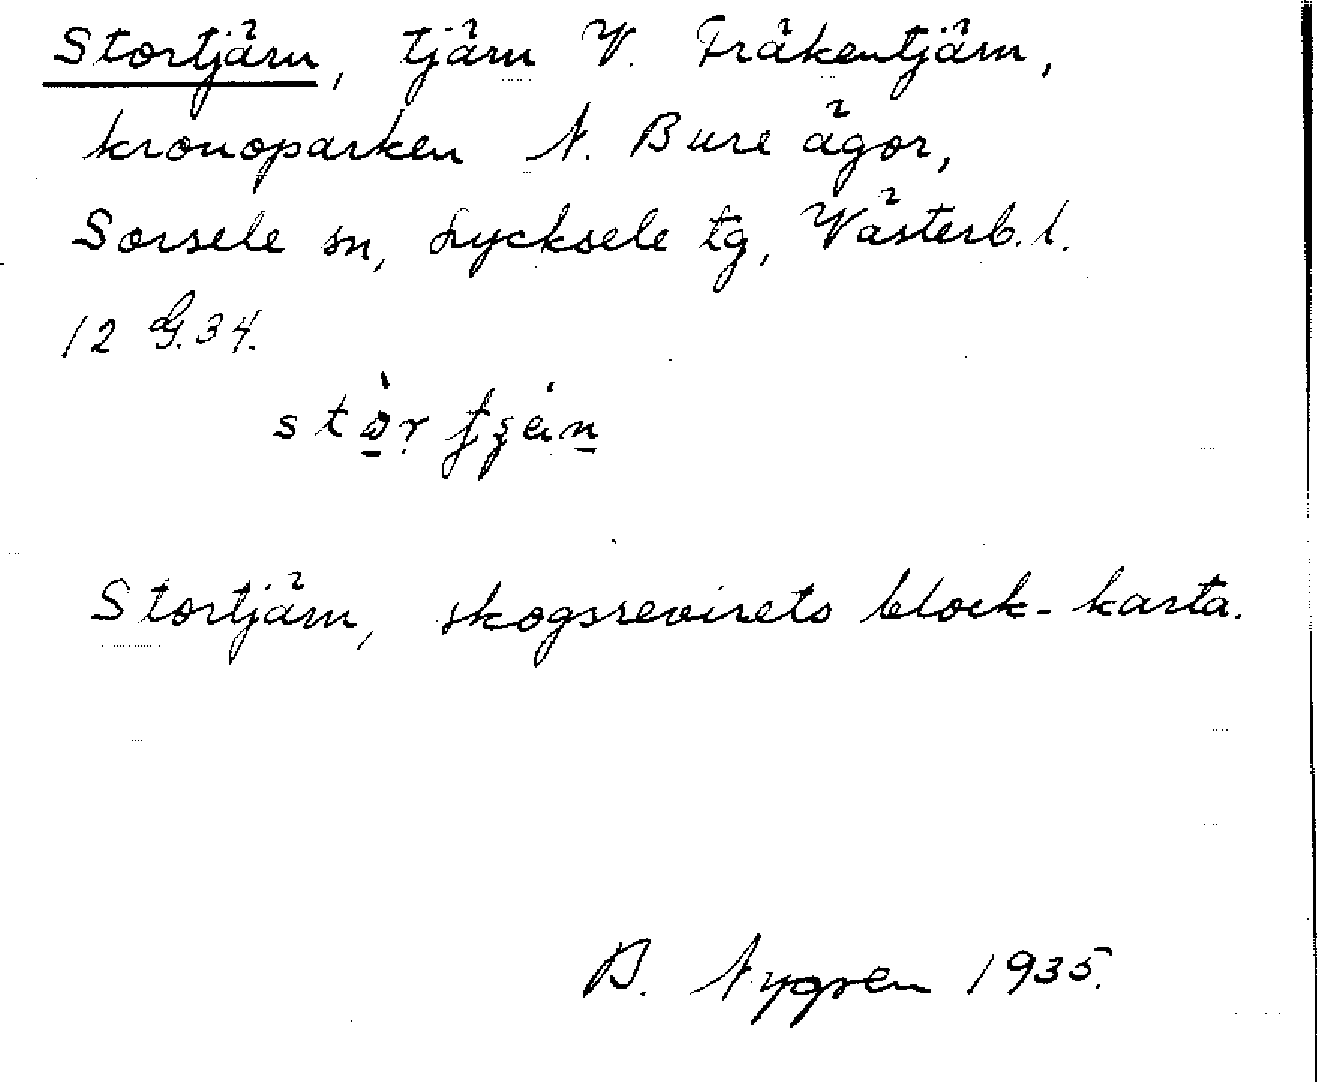 Stortjärn, tjärn V. Fräkentjärn,
kronoparken N. Bure ägor,
Sorsele sn, Lycksele tg, Västerb. l.
12 G. 34.
Stortjärn, skogsrevirets block-karta.
B. Nygren 1935.